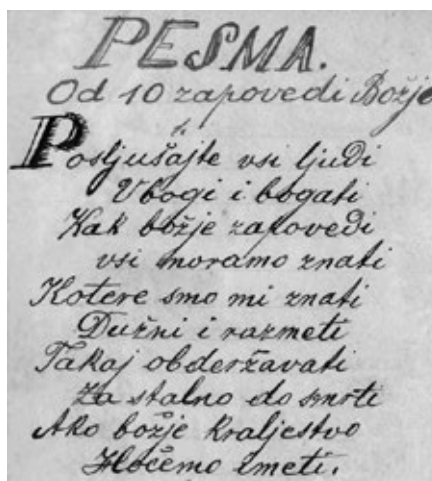 PESMA.
Od 10 zapovedi Božje
1.
Posljušajte vsi ljudi
Vbogi i bogati
Kak božje zapovedi
vsi moramo znati
Kotere smo mi znati
Dužni i razmeti
Takaj obderžavati
Za stalno do smrti
Ako božje kraljestvo
Hočemo imeti.